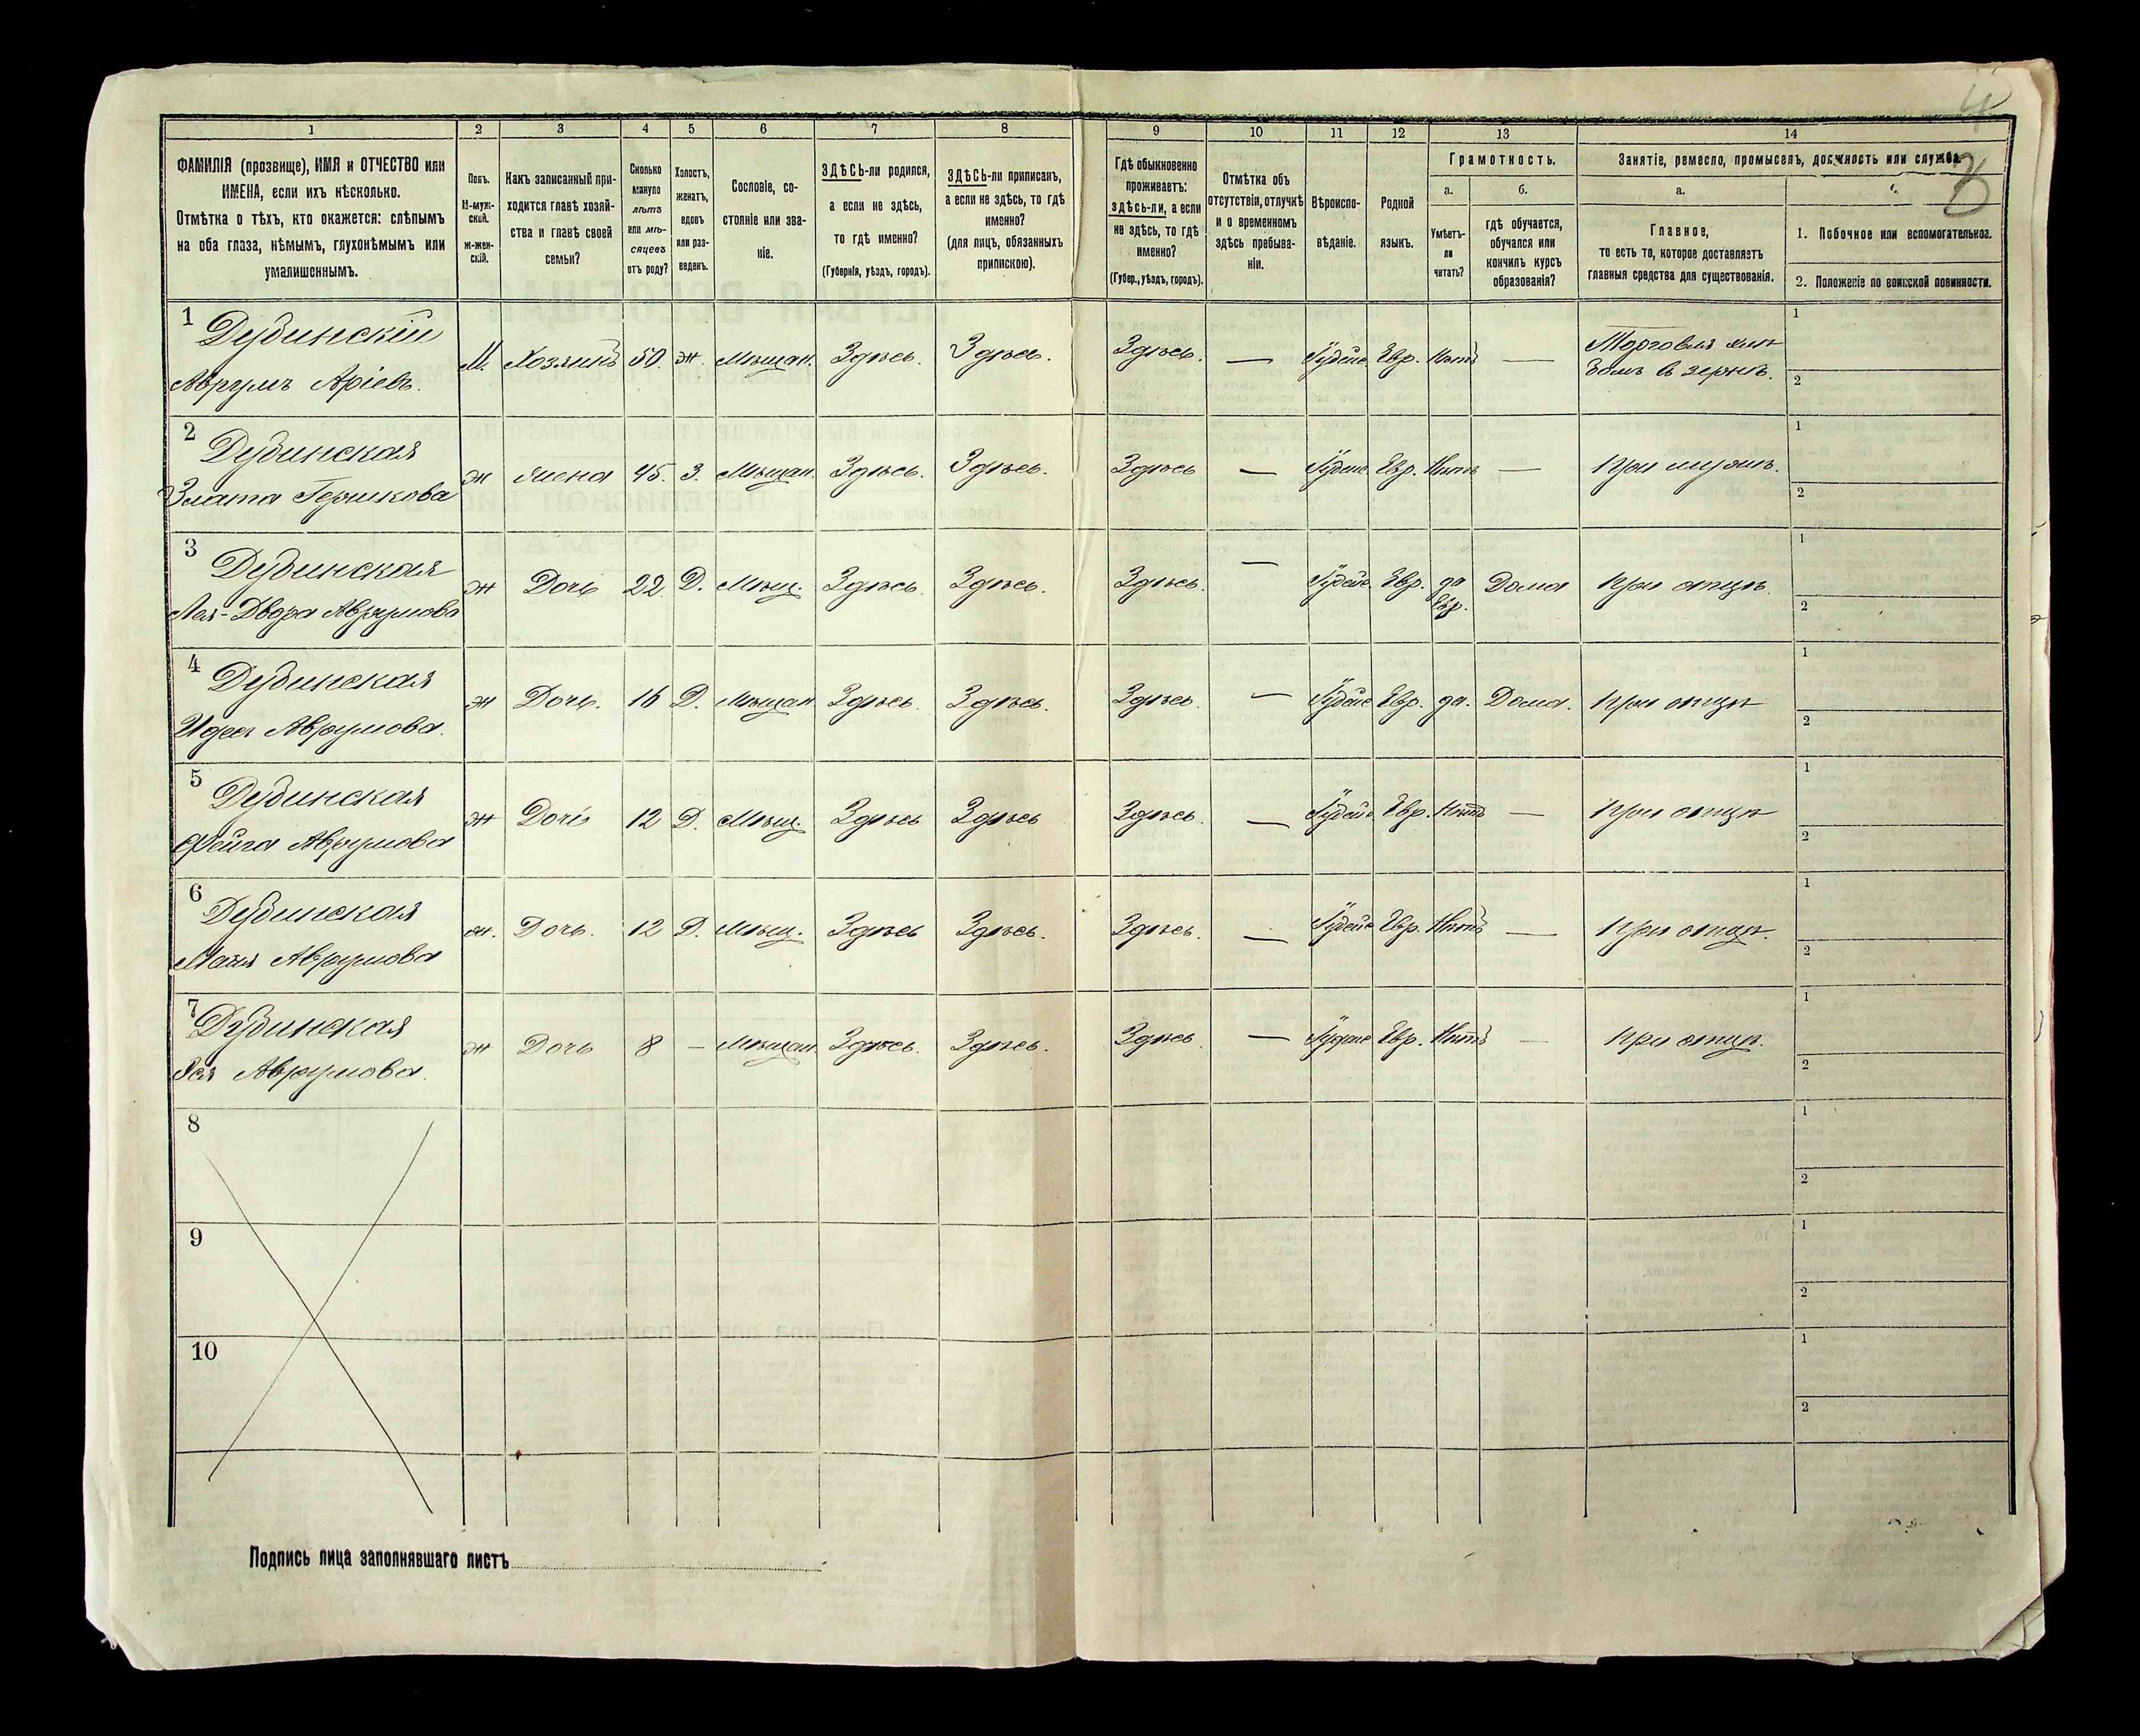 1 2 3 4 5 6 7 8 9 10 11 12 13 14
ФАМИЛІЯ (прозвище), ИМЯ и ОТЧЕСТВО или
ИМЕНА, если ихъ нѣсколько.
Отмѣтка о тѣхъ, кто окажется: слѣпымъ
на оба глаза, нѣмымъ, глухонѣмымъ или
умалишеннымъ.
Полъ.
М-муж-
ской.
ж-жен-
скій.
Какъ записанный при-
ходится главѣ хозяй-
ства и главѣ своей
семьи?
Сколько
минуло
лѣтъ
или мѣ-
сяцевъ
отъ роду?
Холостъ,
женатъ,
вдовъ
или раз-
веденъ.
Сословіе, со-
стояніе или зва-
ніе.
ЗДѢСЬ-ли родился,
а если не здѣсь,
то гдѣ именно?
(Губернія, уѣздъ, городъ).
ЗДѢСЬ-ли приписанъ,
а если не здѣсь, то гдѣ
именно?
(для лицъ, обязанныхъ
припискою).
Гдѣ обыкновенно
проживаетъ:
здѣсь-ли, а если
не здѣсь, то гдѣ
именно?
(Губер., уѣздъ, городъ).
Отмѣтка объ
отсутствіи, отлучкѣ
и о временномъ
здѣсь пребыва-
ніи.
Вѣроиспо-
вѣданіе.
Родной
языкъ.
Грамотность.
а. б.
Умѣетъ-
ли
читать?
гдѣ обучается,
обучался или
кончилъ курсъ
образованія?
Занятіе, ремесло, промыселъ, должность или служба.
а.
Главное,
то есть то, которое доставляетъ
главныя средства для существованія.
1. Побочное или вспомогательное.
2. Положеніе по воинской повинности.
8
1
Дубинскій
Аврумъ Аріевъ.
М. Хозяинъ 50. ж. Мѣщан. Здѣсь. Здѣсь. Здѣсь. — Іудейс. Евр. Нѣтъ —
Торговля хлѣ
бомъ в зернѣ.
1
2
2
Дубинская
Злата Гершкова
ж Жена 45. З. Мѣщан. Здѣсь. Здѣсь. Здѣсь — Іудейс. Евр. Нѣтъ — При мужѣ.
1
2
3
Дубинская
Лея-Двора Аврумова
ж Дочь 22 Д. Мѣщ. Здѣсь Здѣсь. Здѣсь. — Іудейс. Евр. да Дома При отцѣ.
Евр.
1
2
4
Дубинская
Идес Аврумова.
ж Дочь. 16 Д. Мѣщан Здѣсь. Здѣсь. Здѣсь. — Іудейс Евр. да. Дома. При отцѣ
1
2
5
Дубинская
Фейга Аврумова
ж Дочь 12 Д. Мѣщ. Здѣсь Здѣсь Здѣсь. — Іудейс Евр. Нѣтъ — При отцѣ
1
2
6
Дубинская
Маля Аврумова
ж. Дочь. 12 Д. Мѣщ. Здѣсь Здѣсь. Здѣсь. — Іудейс Евр. Нѣтъ — При отцѣ.
1
2
7
Дубинская
Аврумова.
ж Дочь 8 — Мѣщан. Здѣсь. Здѣсь. Здѣсь — Іудейс Евр. Нѣтъ — При отцѣ.
1
2
8
1
2
9
1
2
10
1
2
Подпись лица заполнявшаго листъ